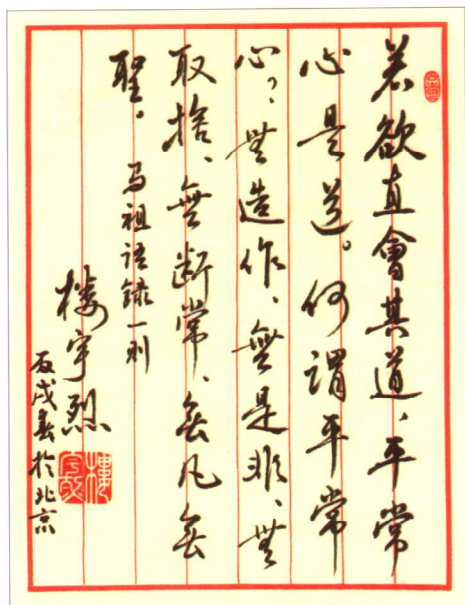 若欲直會其道、平常
心是道。何謂平常
心？無造作、無是非、無
取捨、無断常、無凡無
聖。
马祖语錄一則
樓宇烈
丙戌春於北京
樓宇烈